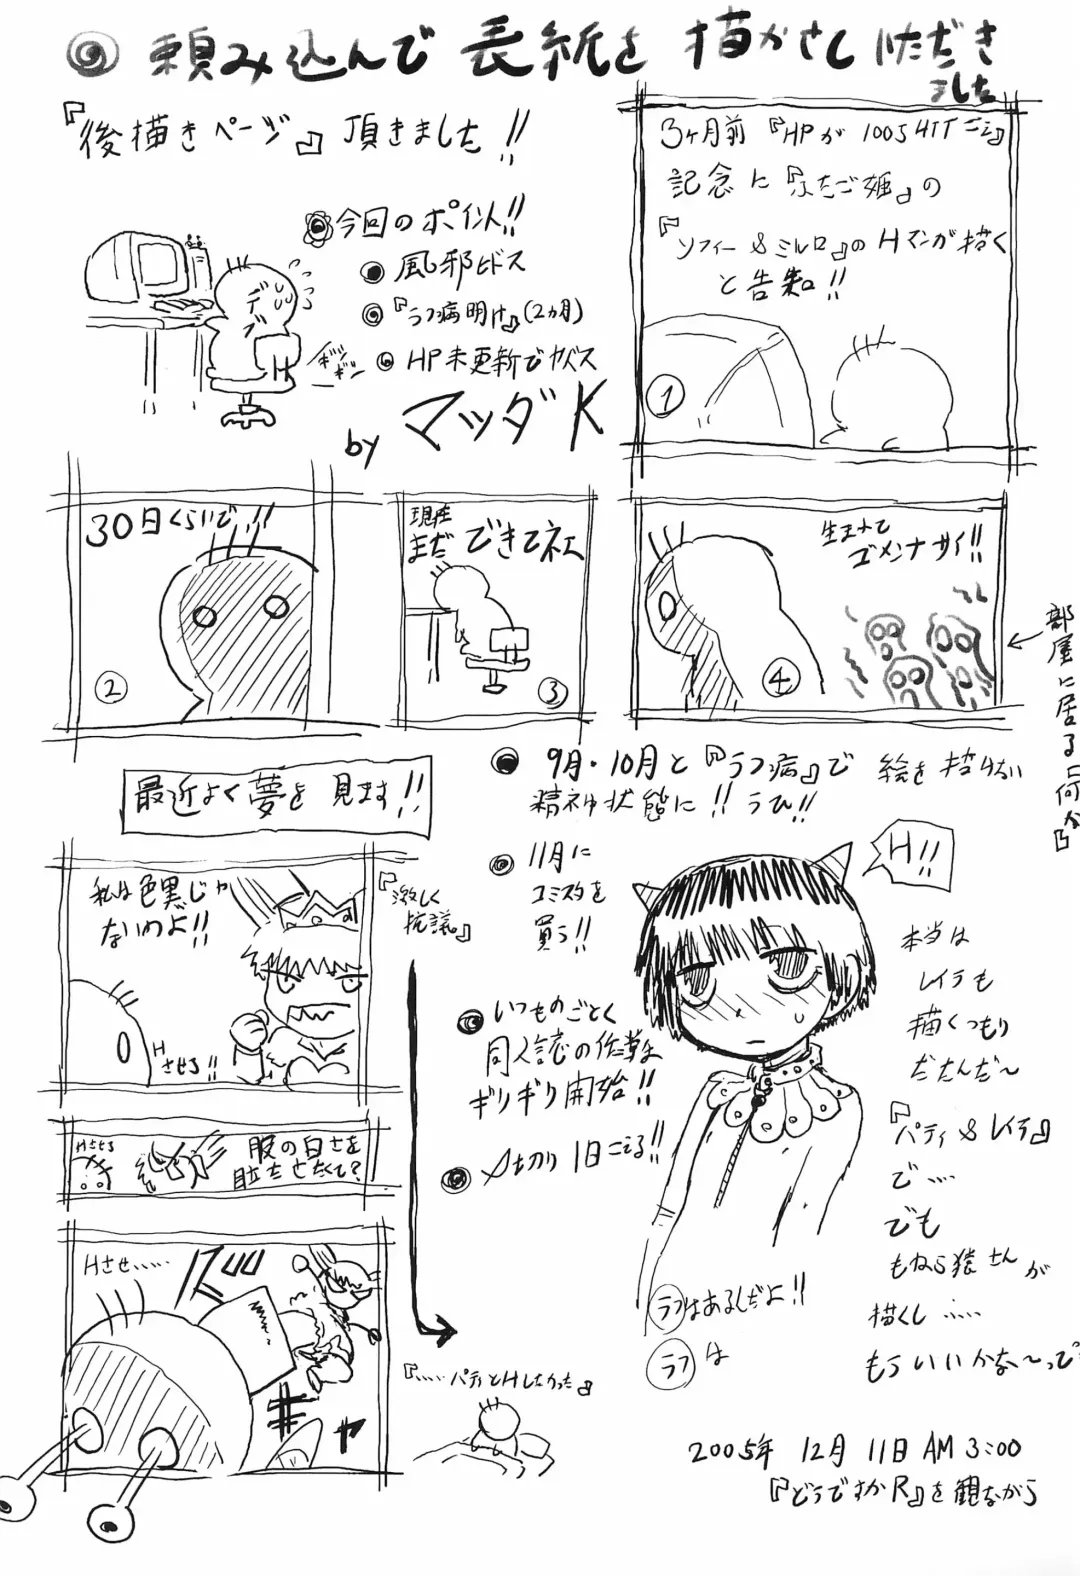 頼み込んで表紙を描かさしいただき
ました
『後描きページ』頂きました!!
今回のポイント!!
風邪ヒドス
『ラフ病明け』(2ヵ月)
HP未更新でヤバス
by マッダK
デブ
H
ギシ
ギシ
3ヶ月前『HPが1005HITごえ』
記念に『ふたご姫』の
『ソフィー&ミルロ』のHマンガ描く
と告知!!
①
30日くらいで!!
②
現在
まだできてネェ
③
生まれて
ゴメンナサイ!!
④
←部屋に居る「何か」
最近よく夢を見ます!!
私は色黒じゃ
ないわよ!!
『激しく
抗議。』
H
させろ!!
Hさせろ
服の白さを
目立たせたくて?
Hさせ……
『……パティとHしたかった』
9月・10月と『ラフ病』で絵を描けない
精神状態に!!うひ!!
11月に
コミスタを
買う!!
いつものごとく
同人誌の作業は
ギリギリ開始!!
〆切り1日ごえる!!
H!!
本当は
レイラも
描くつもり
だたんだ〜
『パティ&レイラ』
で……
でも
もねら猿さんが
描くし……
もういいかな〜って
ラフはあるんだよ!!
ラフは
2005年 12月 11日 AM 3:00
『どうですかR』を観ながら